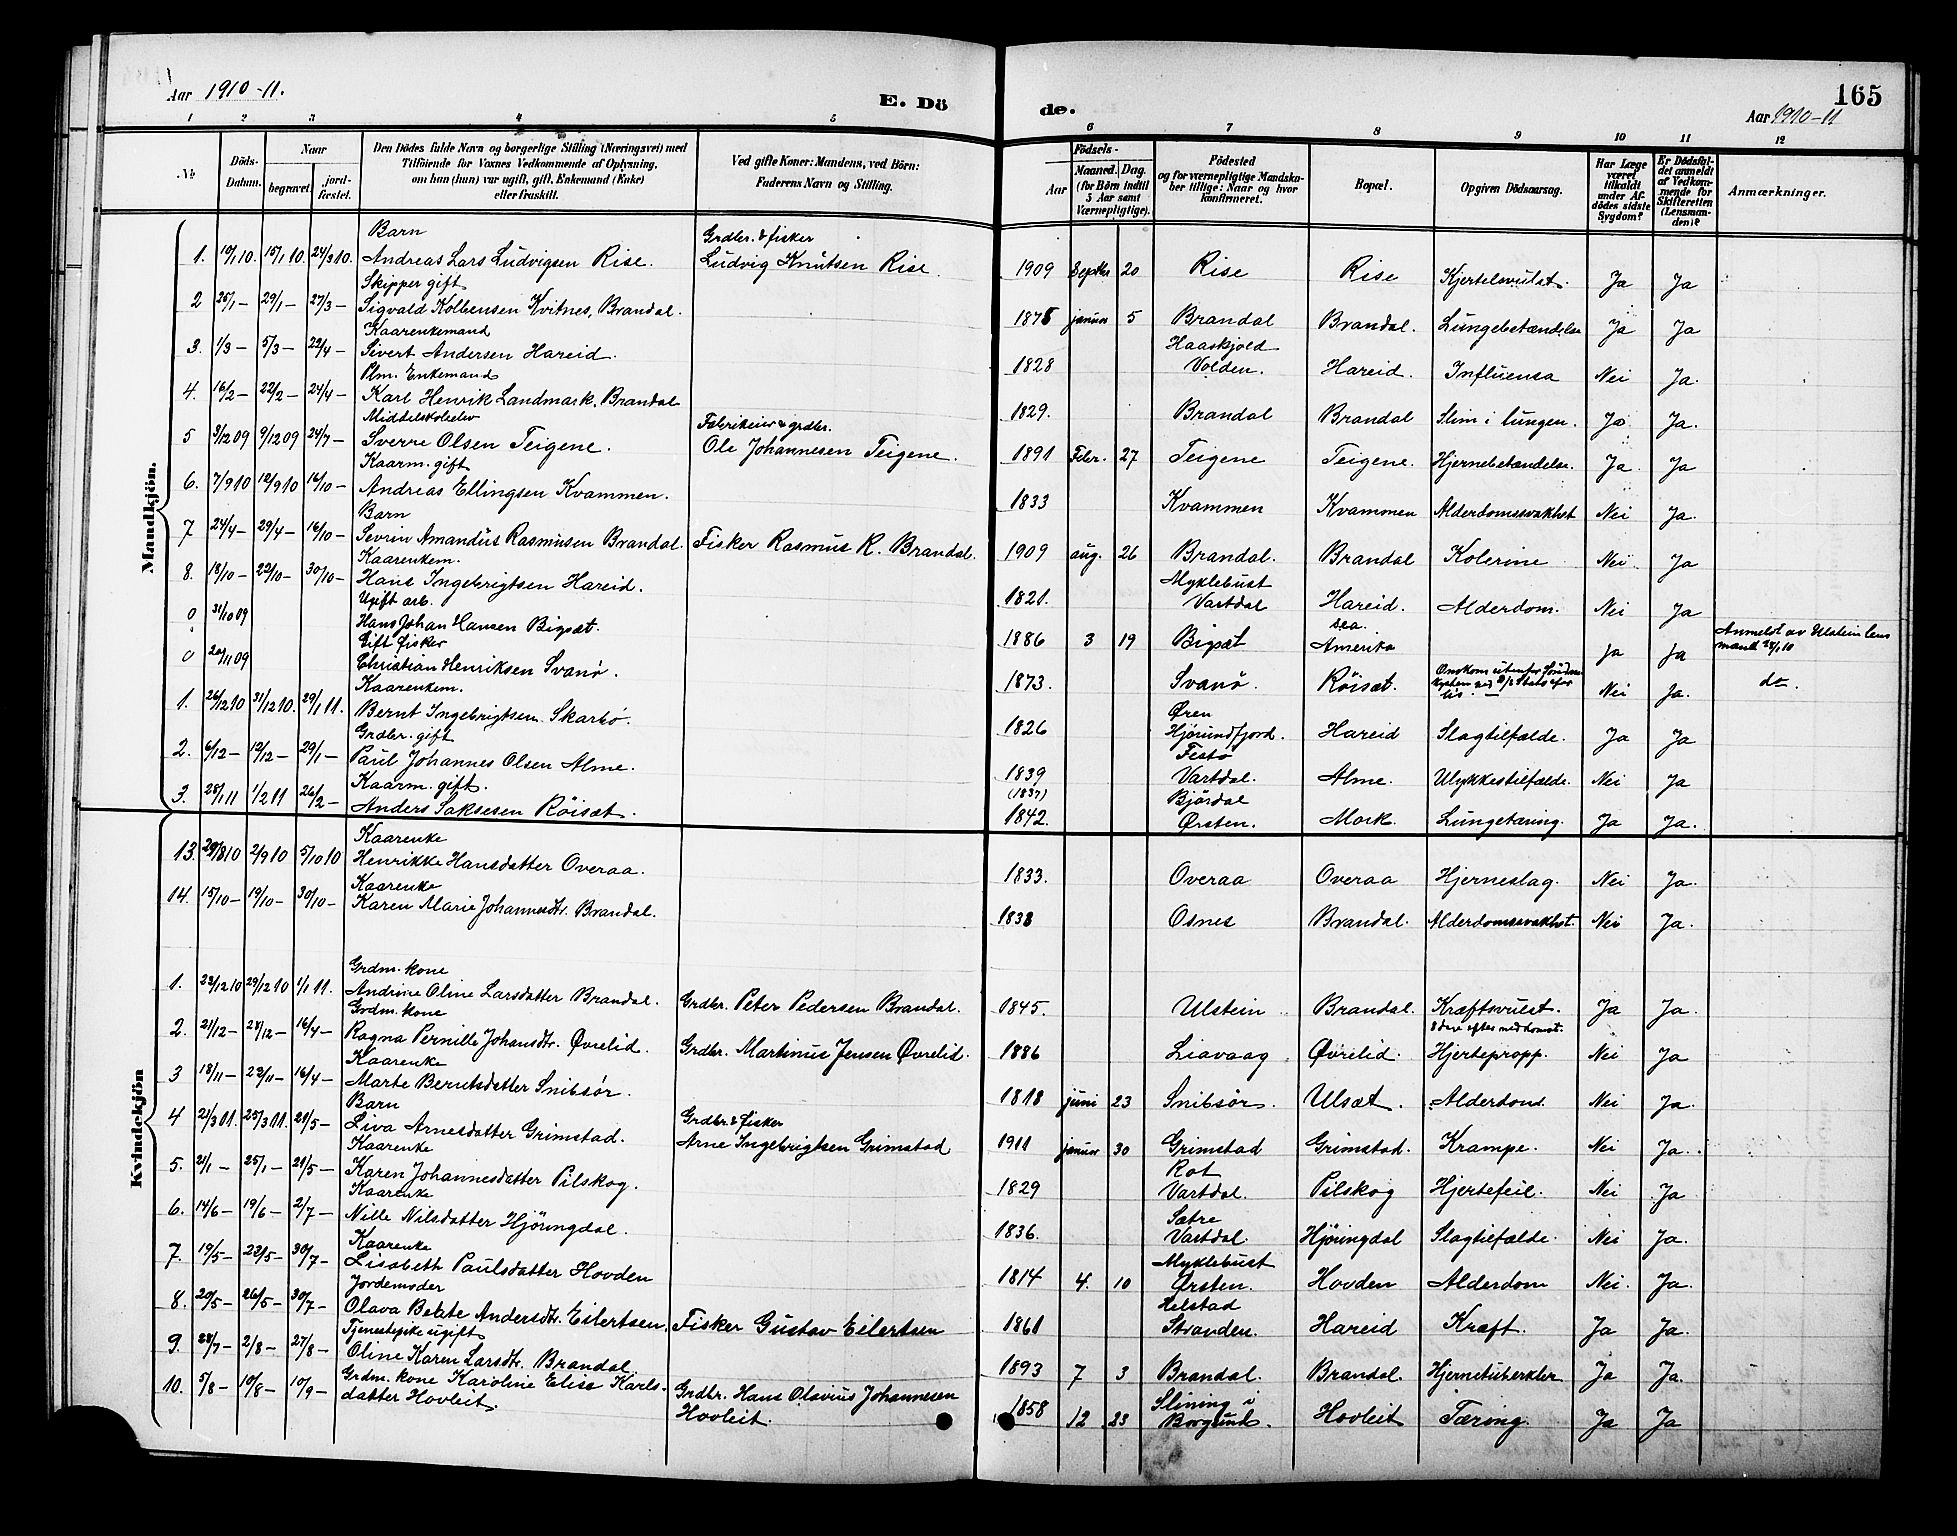 Aar 1910-11.
E. Dö
de.
165
Aar 1910-11
1 2 3 4 5 6 7 8 9 10 11 12
No
Döds-Datum.
Naar
begravet.
jord-fæstet.
Den Dödes fulde Navn og borgerlige Stilling (Næringsvei) med
Tilföiende for Voxnes Vedkommende af Oplysning,
om han (hun) var ugift, gift, Enkemand (Enke)
eller fraskilt.
Ved gifte Koner: Mandens, ved Börn:
Faderens Navn og Stilling.
Födsels-
Aar
Maaned. Dag.
(for Börn indtil
5 Aar samt
Værnepligtige).
Födested
og for værnepligtige Mandska-
ber tillige: Naar og hvor
konfirmeret.
Bopæl.
Opgiven Dödsaarsag.
Har Læge
været
tilkaldt
under Af-
dödes sidste
Sygdom?
Er Dödsfal-
det anmeldt
af Vedkom-
mende for
Skifteretten
(Lensman-
den)?
Anmærkninger.
Mandkjön.
Barn Grdbr. & fisker
1. 10/1 10. 15/1 10. 24/3 10. Andreas Lars Ludvigsen Rise. Ludvig Knutsen Rise. 1909 Septbr 20 Rise Rise Kjertelsvulst. Ja Ja
Skipper gift
2 25/1- 29/1- 27/3- Sigvald Kolbensen Kvitnes, Brandal. 1875 januar 5 Brandal Brandal. Lungebetændelse Ja Ja
Kaarenkemand Haaskjold
3. 1/3- 5/3- 22/4- Sivert Andersen Hareid. 1828 Volden. Hareid. Influensa Nei Ja.
Plm. Enkemand
4. 16/2- 22/2- 24/4- Karl Henrik Landmark, Brandal 1829. Brandal Brandal Slim i lungen. Ja Ja.
Middelskoleelev Fabrikeier & grdbr.
5 3/12 09 9/12 09 24/7- Sverre Olsen Teigene. Ole Johannesen Teigene. 1891 Febr. 27 Teigene Teigene. Hjernebetændelse. Ja. Ja
Kaarm. gift
6. 7/9 10 12/9 10 16/10- Andreas Ellingsen Kvammen. 1833 Kvammen Kvammen Alderdomssvakhet Nei Ja.
Barn
7 24/4- 29/4- 16/10- Sevrin Amandus Rasmusen Brandal. Fisker Rasmus R. Brandal. 1909 aug. 26 Brandal. Brandal Kolerine Nei Ja
Kaarenkem. Myklebust
8. 18/10- 22/10- 30/10- Hans Ingebrigtsen Hareid. 1821. Vartdal Hareid. Alderdom. Nei Ja
Ugift arb.
0 31/10 09 Hans Johan Hansen Bigsæt. 1886 3 19 Bigsæt Amerika Ja Ja Anmeldt av Ulstein lens
mand 24/1 10
Gift fisker
0 20/11 09 Christian Henriksen Svanø. 1873. Svanø. Röisæt. Nei Ja.
Kaarenkem. Øren
1. 26/12 10 31/12 10. 29/1 11. Bernt Ingebrigtsen Skarbö. 1826 Hjörundfjord. Hareid Slagtilfælde. Ja Ja
Grdbr. gift Festö
2. 6/12- 12/12- 29/1- Paul Johannes Olsen Alme. 1839 (1837) Vartdal. Alme. Ulykkestilfælde. Nei Ja
Kaarm. gift. Björdal
3. 28/1 11 1/2 11 26/2- Anders Saksesen Röisæt. 1842. Ørsten. Mork. Lungetæring. Ja Ja.
Kvindekjön
Kaarenke
13. 29/8 10 2/9 10 5/10 10 Henrikke Hansdatter Overaa. 1833. Overaa Overaa Hjerneslag. Nei Ja.
Kaarenke
14. 15/10- 19/10- 30/10- Karen Marie Johannesdtr. Brandal. 1838 Osnes Brandal. Alderdomssvakhet. Nei Ja.
Grdm. kone
1. 23/12 10 29/12 10 1/1 11. Andrine Oline Larsdatter Brandal. Grdbr. Peter Pedersen Brandal. 1845. Ulstein Brandal. Kræftsvulst. Ja Ja.
Grdm. kone
2. 21/12- 28/12- 16/4- Ragna Pernille Johansdtr. Øvrelid. Grdbr. Martinus Jensen Øvrelid. 1886 Liavaag Øvrelid. Hjertepropp. Nei Ja
Kaarenke
3 18/11- 23/11- 16/4- Marte Berntsdatter Snibsör. 1818 juni 23 Snibsör. Ulsæt. Alderdom. Nei Ja.
Barn Grdbr & fisker
4 21/3 11. 25/3 11. 21/5- Liva Arnesdatter Grimstad. Arne Ingebrigtsen Grimstad 1911 januar 30 Grimstad Grimstad. Krampe. Nei Ja.
Kaarenke Rot
5. 21/1- 25/1- 21/5- Karen Johannesdatter Pilskog. 1829 Vartdal. Pilskog Hjertefeil. Nei Ja
Kaarenke Sætre
6. 14/6- 19/6- 2/7- Nille Nilsdatter Hjöringdal. 1836. Vartdal. Hjöringdal Slagtilfælde. Nei Ja.
Kaarenke Myklebust
7. 19/5- 23/5- 30/7- Lisabeth Paulsdatter Hovden 1814 4. 10 Ørsten. Hovden Alderdom Nei. Ja.
Jordemoder Helstad
8. 20/5- 26/5- 30/7- Olava Beate Andersdtr. Eilertsen. Fisker Gustav Eilertsen 1861 Stranden. Hareid Kræft. Ja Ja.
Tjenestepike ugift
9. 28/7- 2/8- 27/8- Oline Karen Larsdtr. Brandal 1893 7 3 Brandal. Brandal. Hjernetuberkler Ja Ja.
10. 5/8- 10/8- 10/9- Grdm. kone Karoline Elise Karls-
datter Hovleit. Grdbr. Hans Olavius Johannesen
Hovleit. 1858 12 23 Slining i
Borgund. Hovleit Tæring. Ja Ja